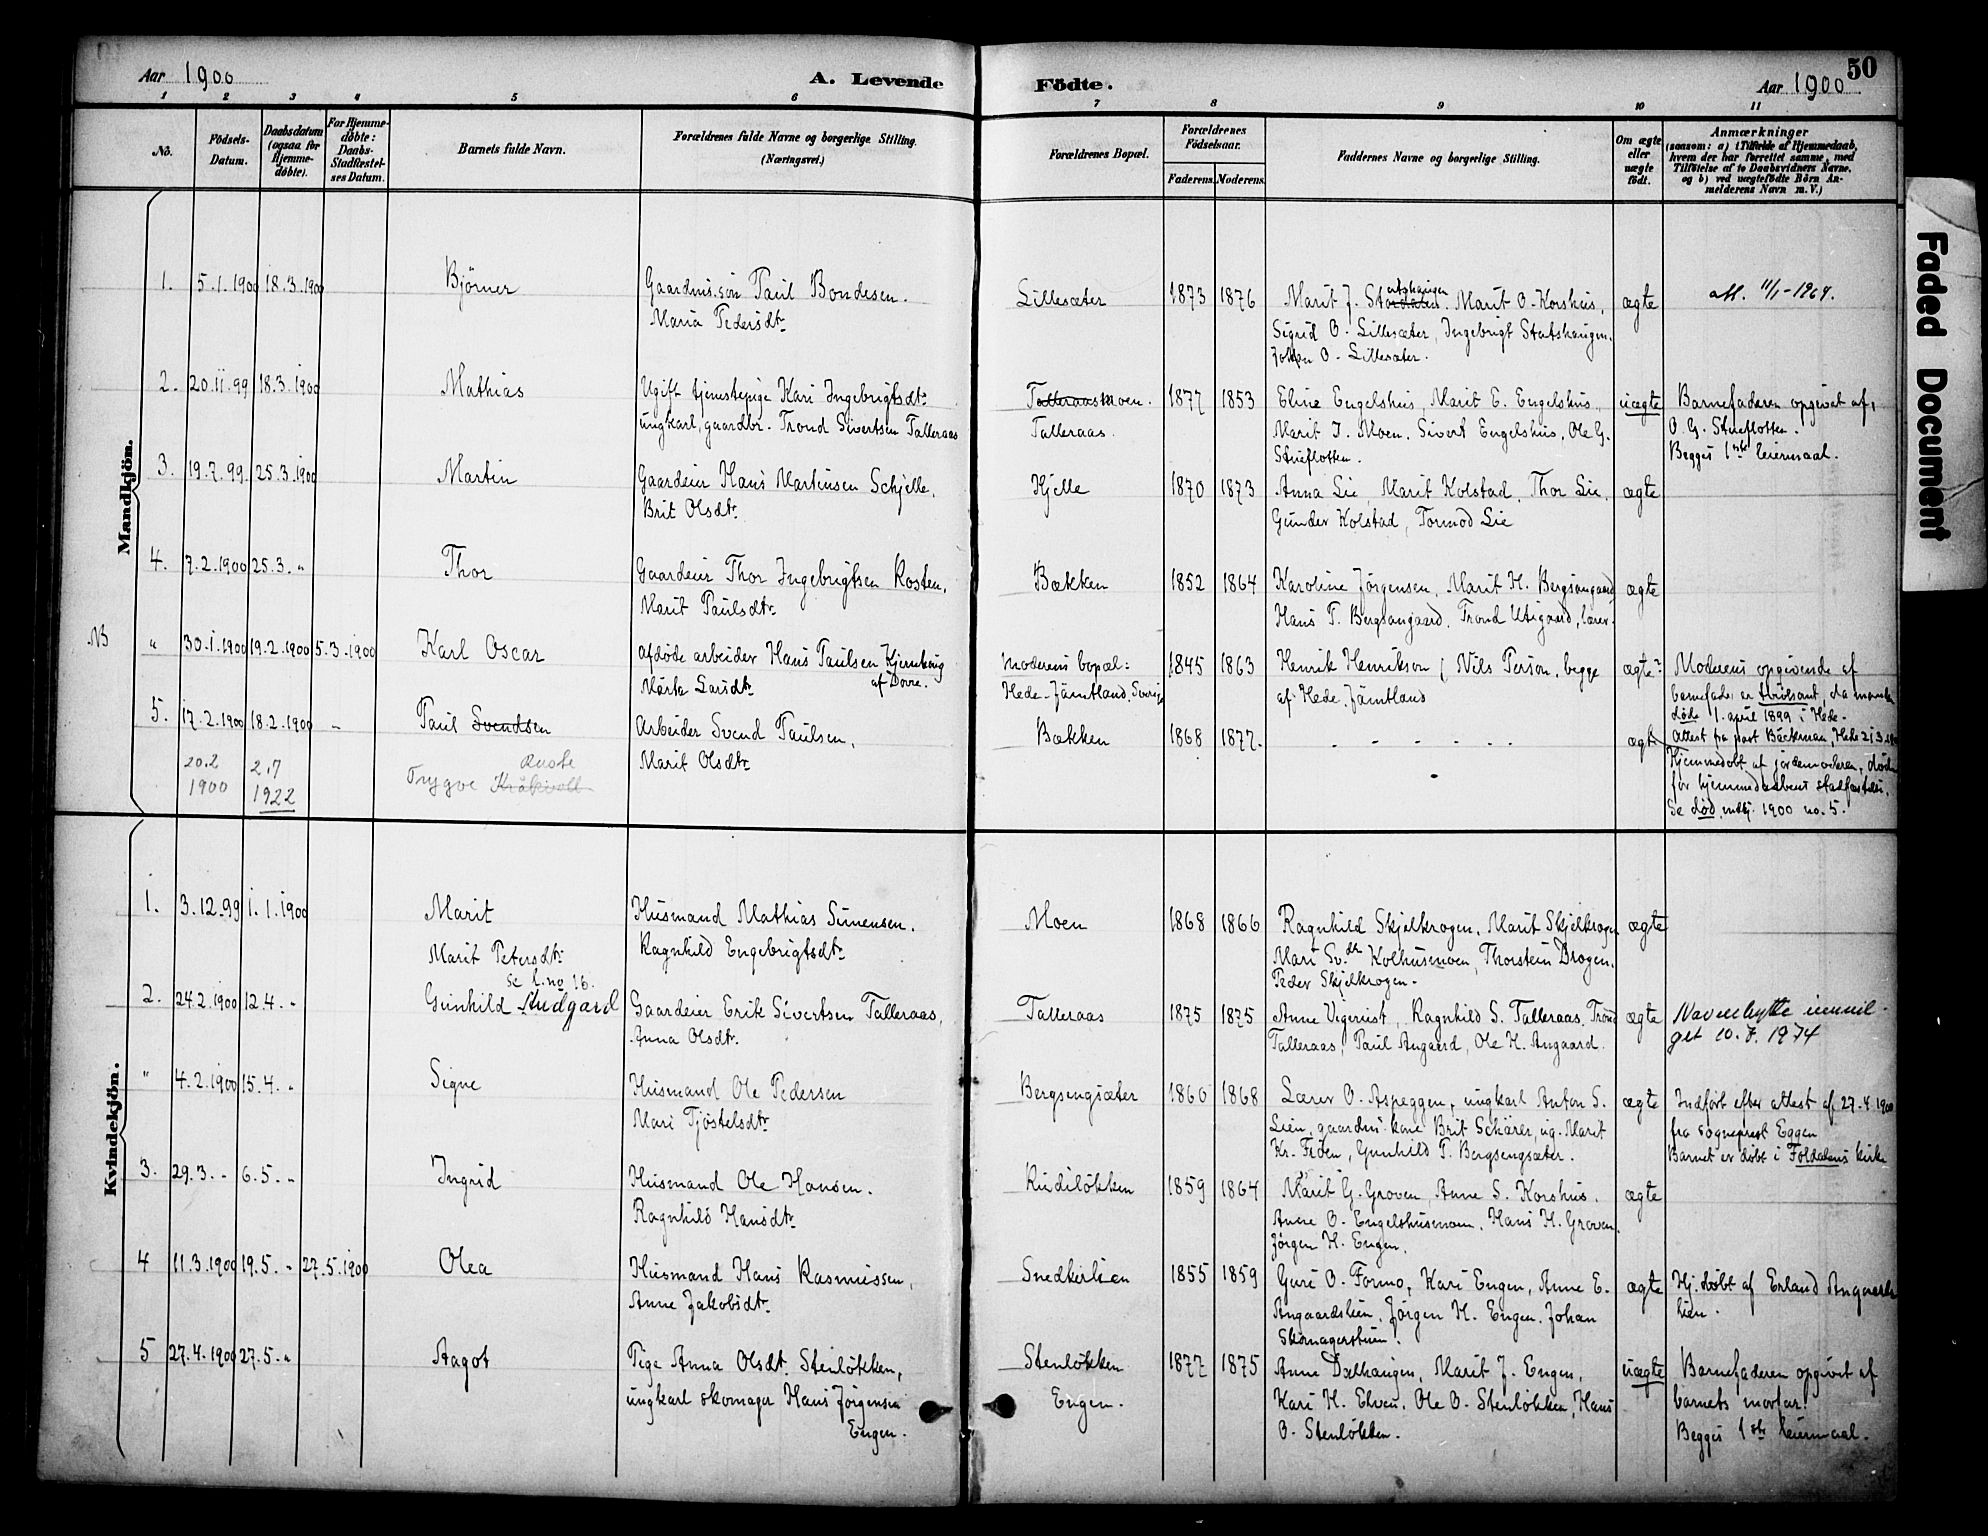 Aar 1900
A. Levende
Födte.
Aar 1900
50
1 2 3 4 5 6 7 8 9 10 11
No.
Födsels-Datum.
Daabsdatum (ogsaa for Hjemme-döbte).
For Hjemme-döbte: Daabs-Stadfæstel-ses Datum.
Barnets fulde Navn.
Forældrenes fulde Navne og borgerlige Stilling. (Næringsvei.)
Forældrenes Bopæl.
Forældrenes Födselsaar.
Faderens. Moderens.
Faddernes Navne og borgerlige Stilling.
Om ægte eller uægte födt.
Anmærkninger
(saasom: a) i Tilfælde af Hjemmedaab,
hvem der har forrettet samme, med
Tilföielse af to Daabsvidners Navne,
og b) ved uægtefödte Börn An-
melderens Navn m. V.)
Mandkjön.
1. 5.1.1900 18.3.1900 Björner
Gaardms.sön Paul Bondesen.
Maria Pedersdtr
Lillesæter 1873 1876
Marit J. Statshaugen. Marit O. Korshus,
Sigrid O. Lillesæter, Ingebrigt Statshaugen.
O. Lillesæter.
ægte
att. 11/1-1964.
2. 20.11.99 18.3.1900 Mathias
Ugift tjenestepige Kari Ingebrigtsdtr
ungkarl, gaardbr. Trond Sivertsen Talleraas
Talleraasmoen.
Talleraas.
1877 1853
Eline Engelshus, Marit E. Engelshus,
Marit I. Moen. Sivert Engelshus, Ole G.
Stueflotten.
uægte
Barnefaderen opgivet af,
O. G. Stueflotten.
Begges 1ste leiermaal.
3. 19.7.99. 25.3.1900 Martin
Gaardeier Hans Martinsen Schjelle.
Brit Olsdtr
Kjelle 1870 1873
Anna Lie, Marit Kolstad, Thor Lie,
Gunder Kolstad, Tormod Lie
ægte
4. 7.2.1900 25.3. " Thor
Gaardeier Thor Ingebrigtsen Rosten.
Marit Paulsdtr
Bækken 1852 1864
Karoline Jörgensen, Marit H. Bergsangaard
Hans P. Bergsangaard. Trond Utigaard, lærer
ægte
NB " 30.1.1900 19.2.1900 5.3.1900 Karl Oscar
Afdöde arbeider Hans Paulsen Kjernhaug
Märta Larsdtr af Dovre.
Moderens bopæl:
Hede Jämtland. Sverige
1845 1863
Henrik Henrikson, Nils Person, begge
af Hede Jämtland
ægte?
Moderens opgivende af
barnefader er tvilsomt, da manden
döde 1. april 1899 i Hede.
Attest fra past Bäckman, Hede 21
5. 17.2.1900 18.2.1900 - Paul Svendsen
Arbeider Svend Paulsen.
Marit Olsdtr
Bækken 1868 1877.
- - - - - -
ægte
Hjemmedöbt af jordemoderen, döde
för hjemmedaabens stadfæstelse.
Se död, mdkj. 1900 no. 5.
20.2
1900
2.7
1922
Trygve Kråkvoll
Kvindekjön.
1. 3.12.99 1.1.1900 Marit
Marit Petersdtr
Se l.no 16.
Husmand Mathias Simensen.
Ragnhild Engebrigtsdtr
Moen 1868 1866
Ragnhild Skjelkrogen. Marit Skjelkrogen
Mari Sv.dtr Kolhusmoen, Thorstein Brogen.
Peder Skjelkrogen.
ægte
2. 24.2.1900 12.4. " Gunhild Audgard
Gaardeier Erik Sivertsen Talleraas,
Anna Olsdtr.
Talleraas 1875 1875
Anne Vigerust, Ragnhild S. Talleraas. Trond
Talleraas, Paul Angaard, Ole H. Angaard.
ægte
Navnebytte innvil-
get 10.7.1974
" 4.2.1900 15.4. " Signe
Husmand Ole Pedersen
Mari Tjöstelsdtr
Bergsengsæter 1860 1868
Lærer O. Aspeggen, ungkarl Anton S.
Lien, gaardms. kone Brit Schärer, ug. Marit
Kr. Ficen, Gunhild P. Bergsengsæter.
ægte
Indfört efter attest af 27.4.1900
fra sogneprest Eggen
Barnet er döbt i Foldalens kirke
3. 29.3. - 6.5. " Ingrid
Husmand Ole Hansen.
Ragnhild Hansdtr
Rudilökken 1859 1864
Marit G. Groven, Anne S. Korshus.
Anne O. Engelshusmoen, Hans H. Groven.
Jörgen H. Engen.
ægte
4 11.3.1900 19.5. " 27.5.1900 Olea
Husmand Hans Rasmussen,
Anne Jakobsdtr
Snedkerlien 1855 1859
Guri O. Formo, Kari Engen, Anne E.
Angaardslien. Jörgen H. Engen. Johan
Skomagerstuen.
ægte
Hj. döbt af Erland Angaards
lien.
5 27.4.1900 27.5. " Aagot
Pige Anna Olsdt. Stenlökken,
ungkarl skomager Hans Jörgensen
Engen.
Stenlökken
Engen.
1877 1875
Anne Dælhaugen, Marit J. Engen,
Kari H. Elven. Ole O. Stenlökken, Hans
O. Stenlökken.
uægte
Barnefaderen opgivet af
barnets morfar.
Begges 1ste leiermaal.
Faded Document